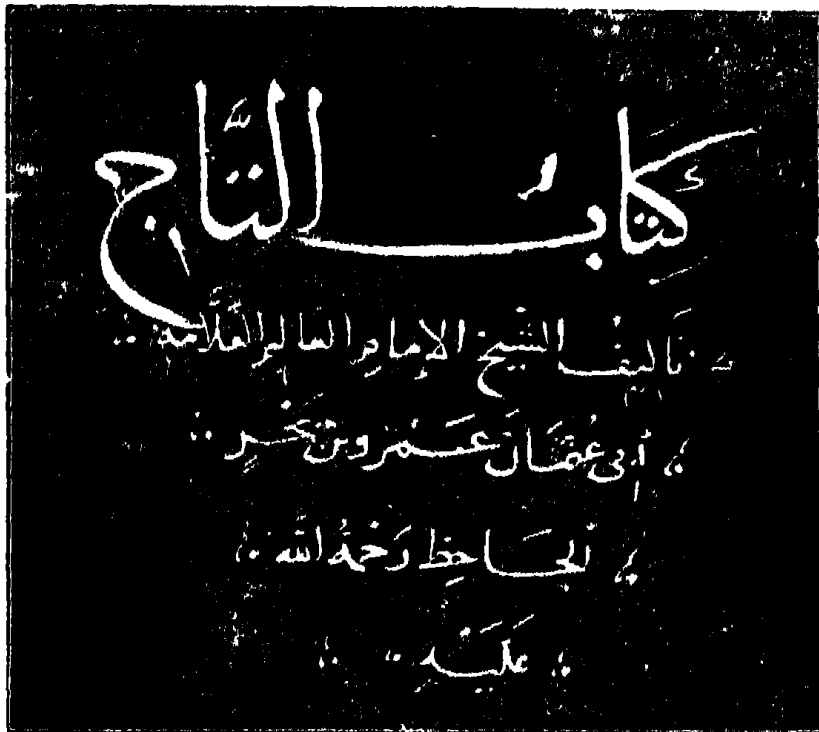 كتابُ التَّاج
تَأليف الشيخ الإمام العالم العلَّامة
أبى عُثمَانَ عَمْرو بن بَحْرٍ
الجَاحِظِ رَحمةُ الله
عَلَيْه